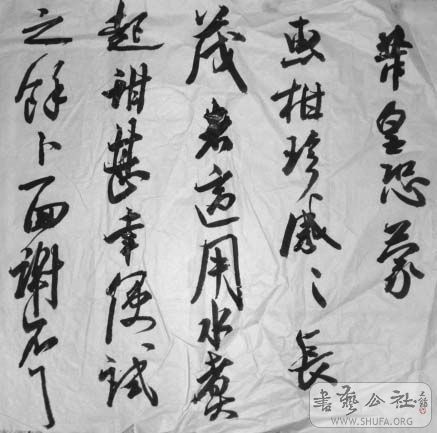 芾皇恐蒙
惠柑珍感〻長
茂者適用水煮
起甜甚幸便試
之餘卜面謝不
書藝公社
WWW.SHUFA.ORG